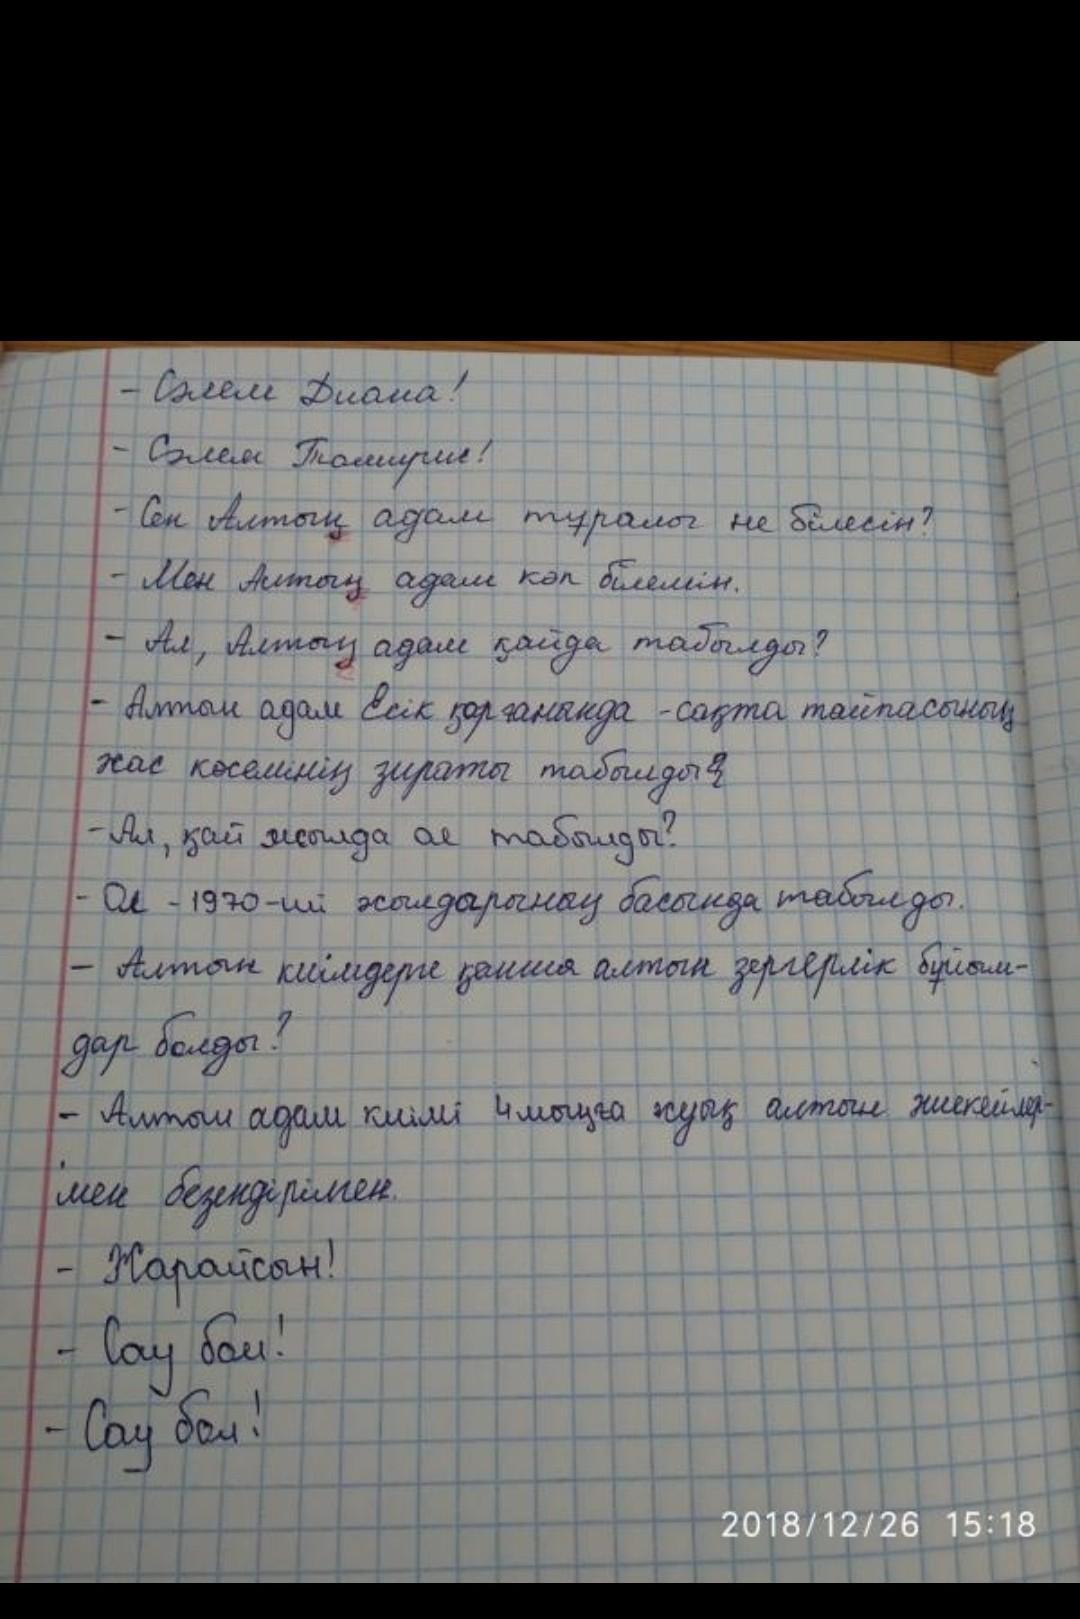 - Сәлем Диана!
- Сәлем Томирис!
- Сен Алтың адам тұралы не білесін?
- Мен Алтың адам көп білемін.
- Ал, Алтың адам қайда табылды?
- Алтын адам Есік қорғанында -сақта тайпасының
жас көсемінің зираты табылды
- Ал, қай жылда ол табылды?
- Ол - 1970-ші жылдарының басында табылды.
- Алтын киімдерге қанша алтын зергерлік бұйым-
дар болды?
- Алтын адам киімі 4 мыңға жуық алтын
мен безендірілген.
- Жарайсын!
- Сау бол!
- Сау бол!
2018/12/26 15:18